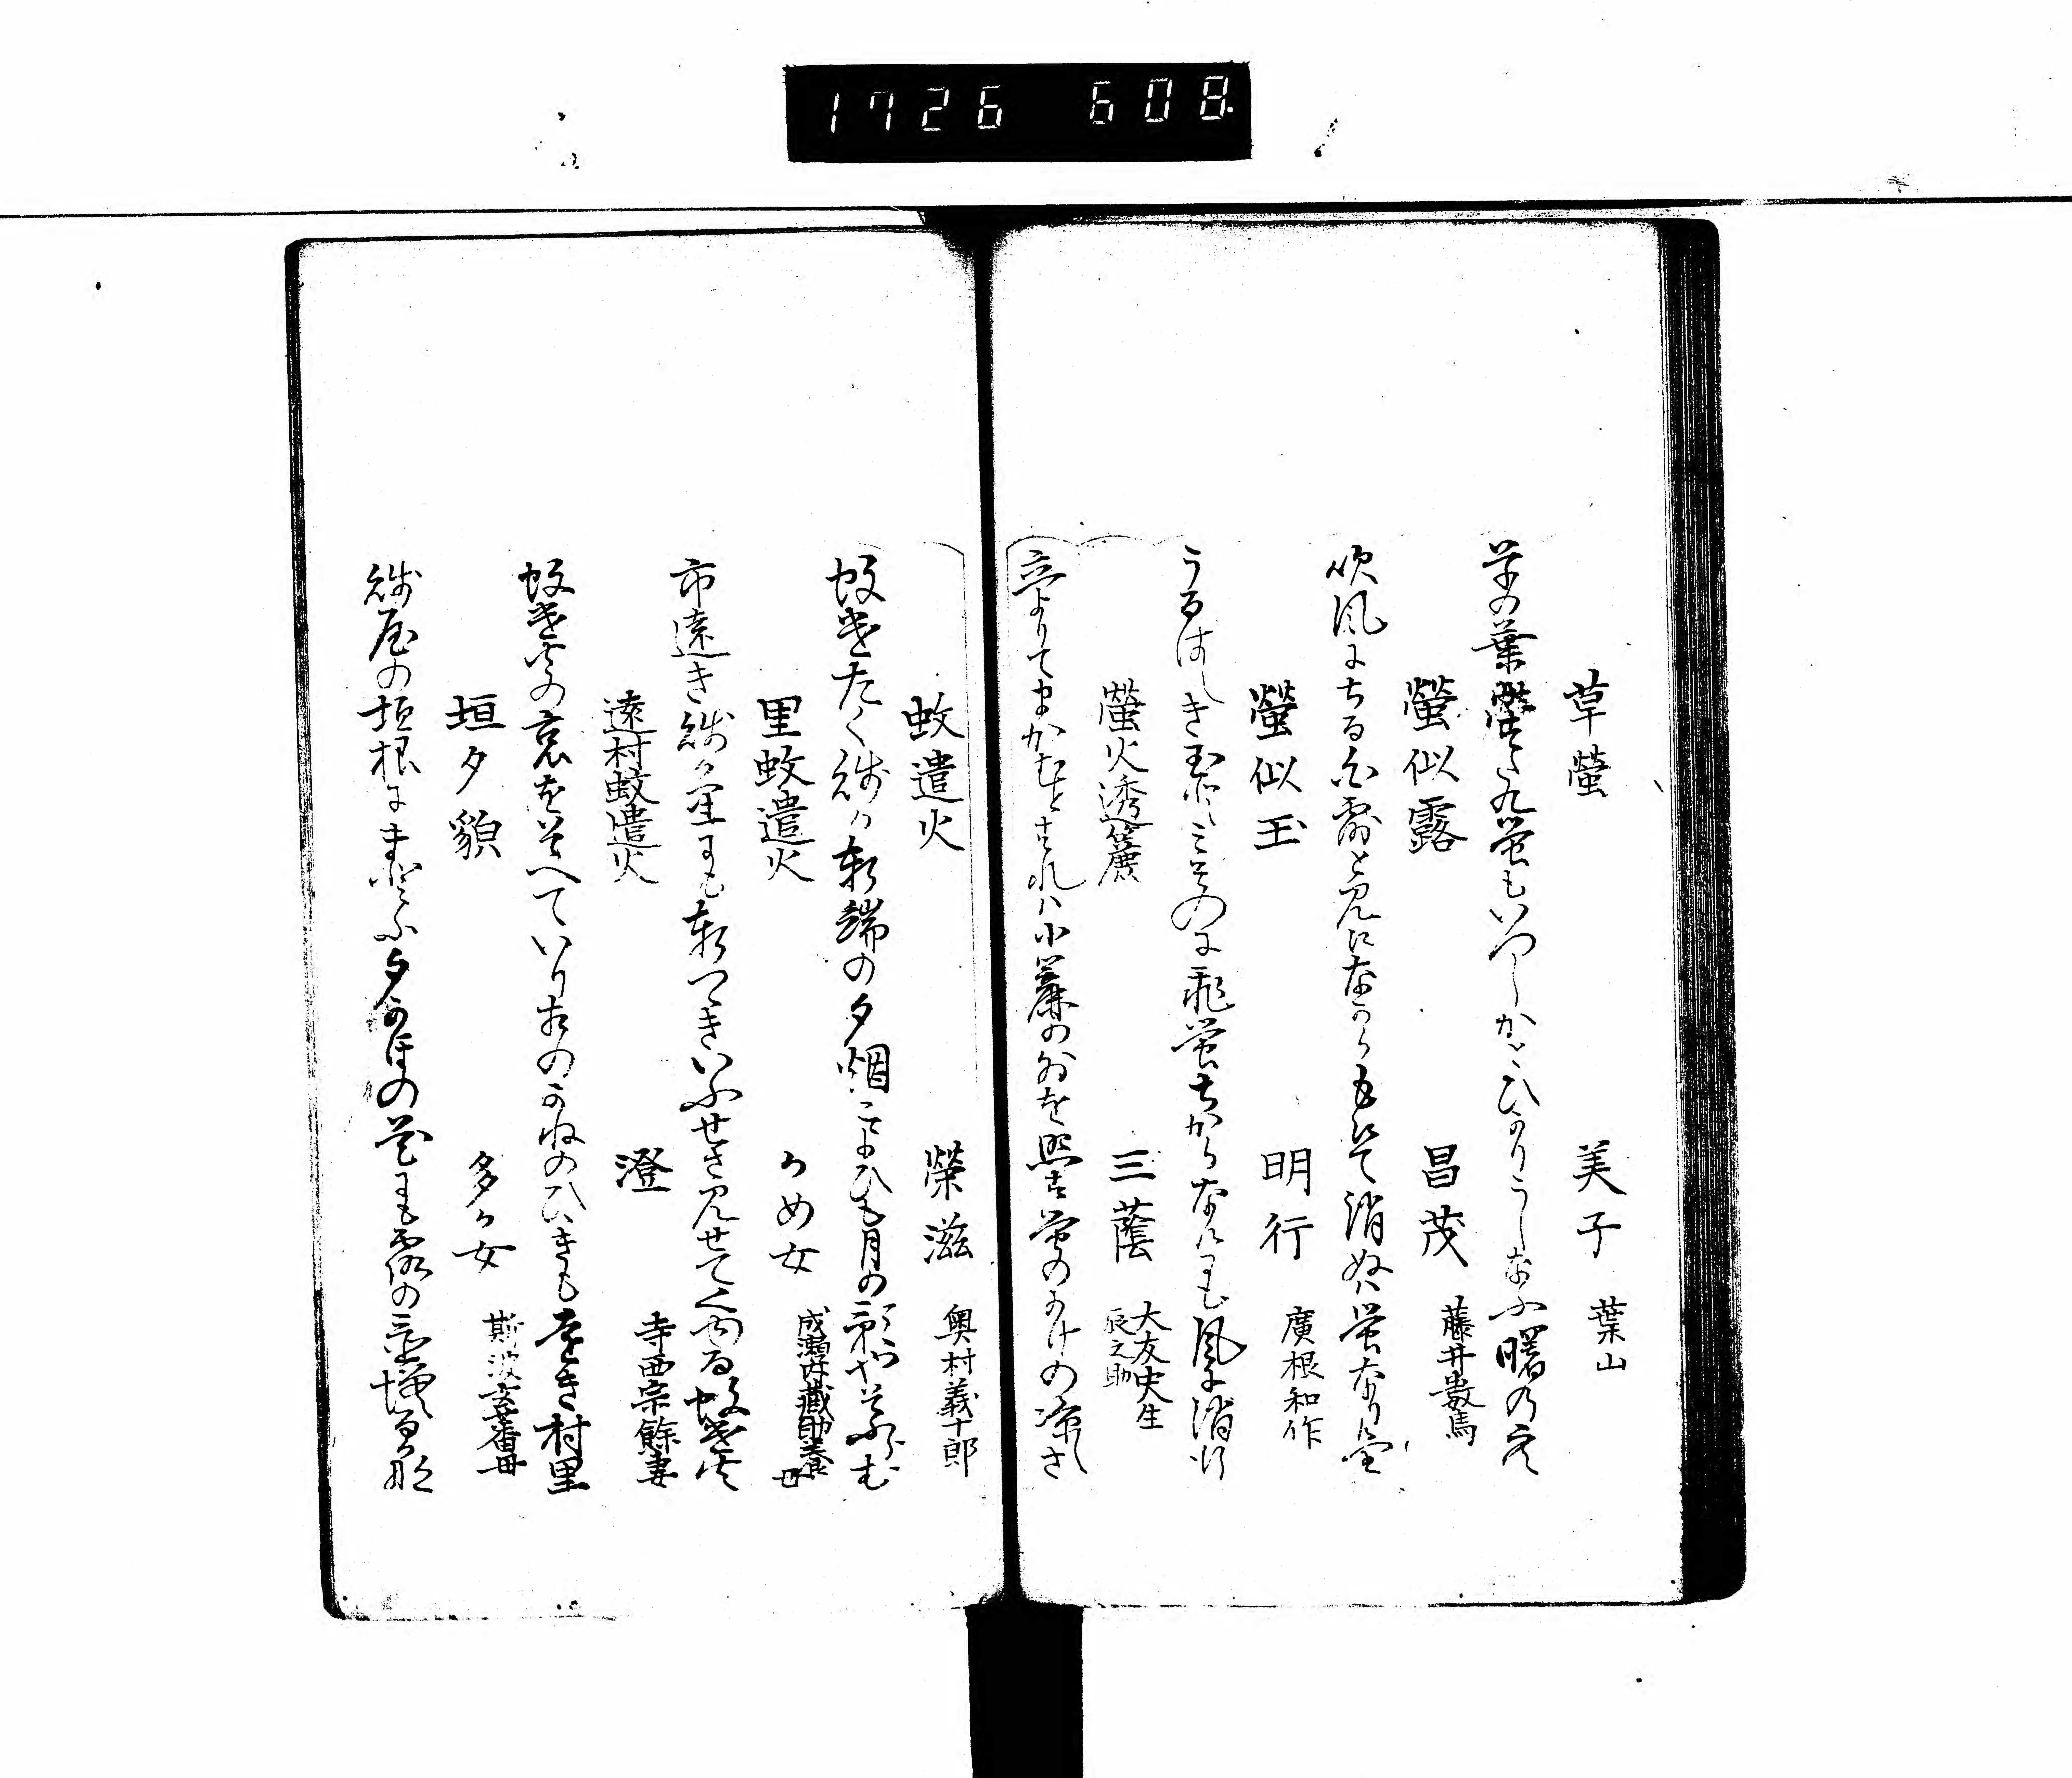 1726 608
草螢　美子　葉山
草の葉にすたく螢もいつしかとひかりうしなふ曙の空
螢似露　昌茂　藤井數馬
吹風にちる白露と見しなから
消ぬは螢なりけり
螢似玉　明行　廣根和作
うるはしき玉
飛螢ちからなくにも風に消行
螢火透簾　三蔭　大友史生
辰之助
立よりてまかむとすれハ小簾の外を照す螢のかけの凉しさ
蚊遣火　榮滋　奥村義十郎
蚊遣たく賤か軒端の夕烟こよひも月の影やそふらむ
里蚊遣火　かめ女　成瀬内藏助養母
市遠き賤か室にも軒つゝきいふせさ見せてくゆる蚊遣火
遠村蚊遣火　澄　寺西宗餘妻
蚊遣火の哀をそへていりあひのかねのひゝきも遠き村里
垣夕貌　多か女　斯波玄蕃母
賤屋の垣根にまとふ夕かほの花にも露の